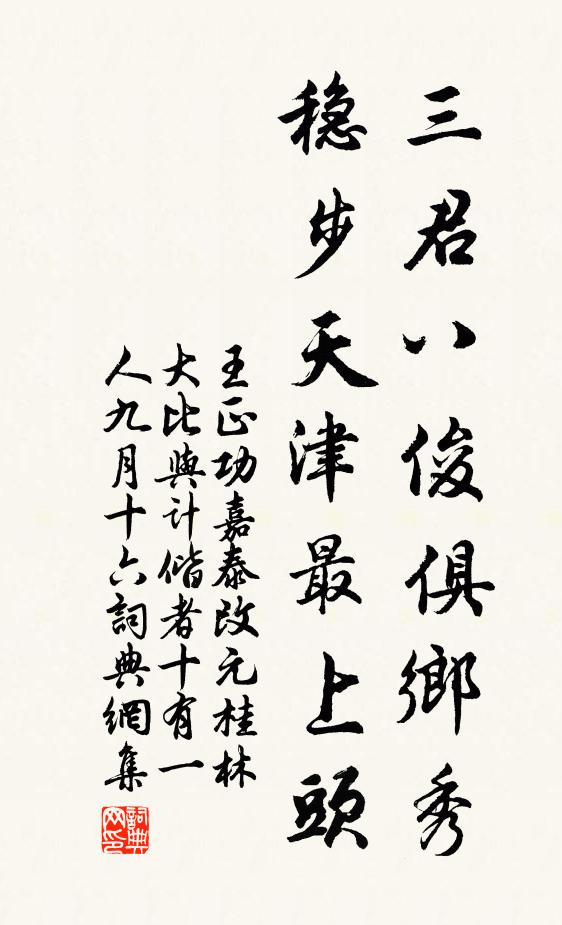 三君八俊俱鄉秀
穩步天津最上頭
王正功嘉泰改元桂林
大比與計偕者十有一
人九月十六詞典網集
詞典
网印